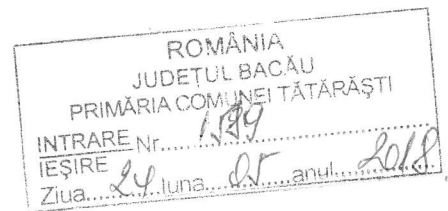 ROMÂNIA
JUDEȚUL BACĂU
PRIMĂRIA COMUNEI TĂTĂRĂȘTI
INTRARE Nr..... 1599 ...............
IEȘIRE
Ziua..... 24 .luna.. 05 ......anul.... 2018 ....